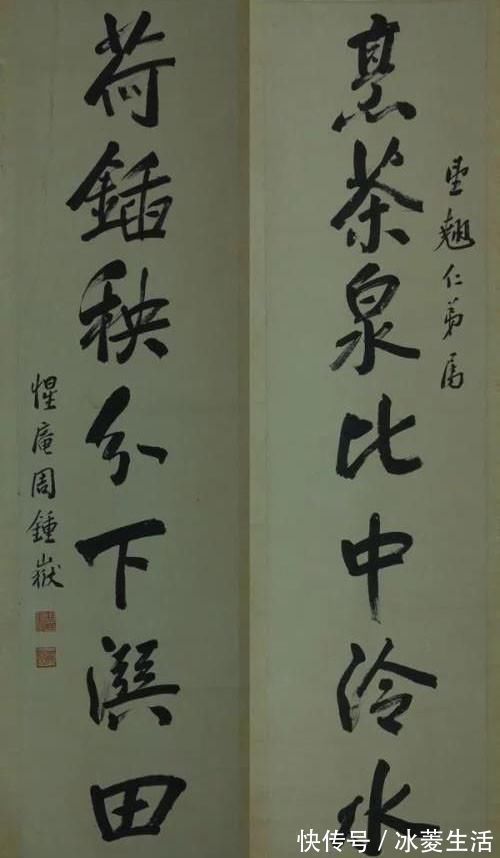 翹仁弟属
烹茶泉比中泠水
荷鍤秧分下潠田
惺庵周鍾嶽
快传号/冰菱生活